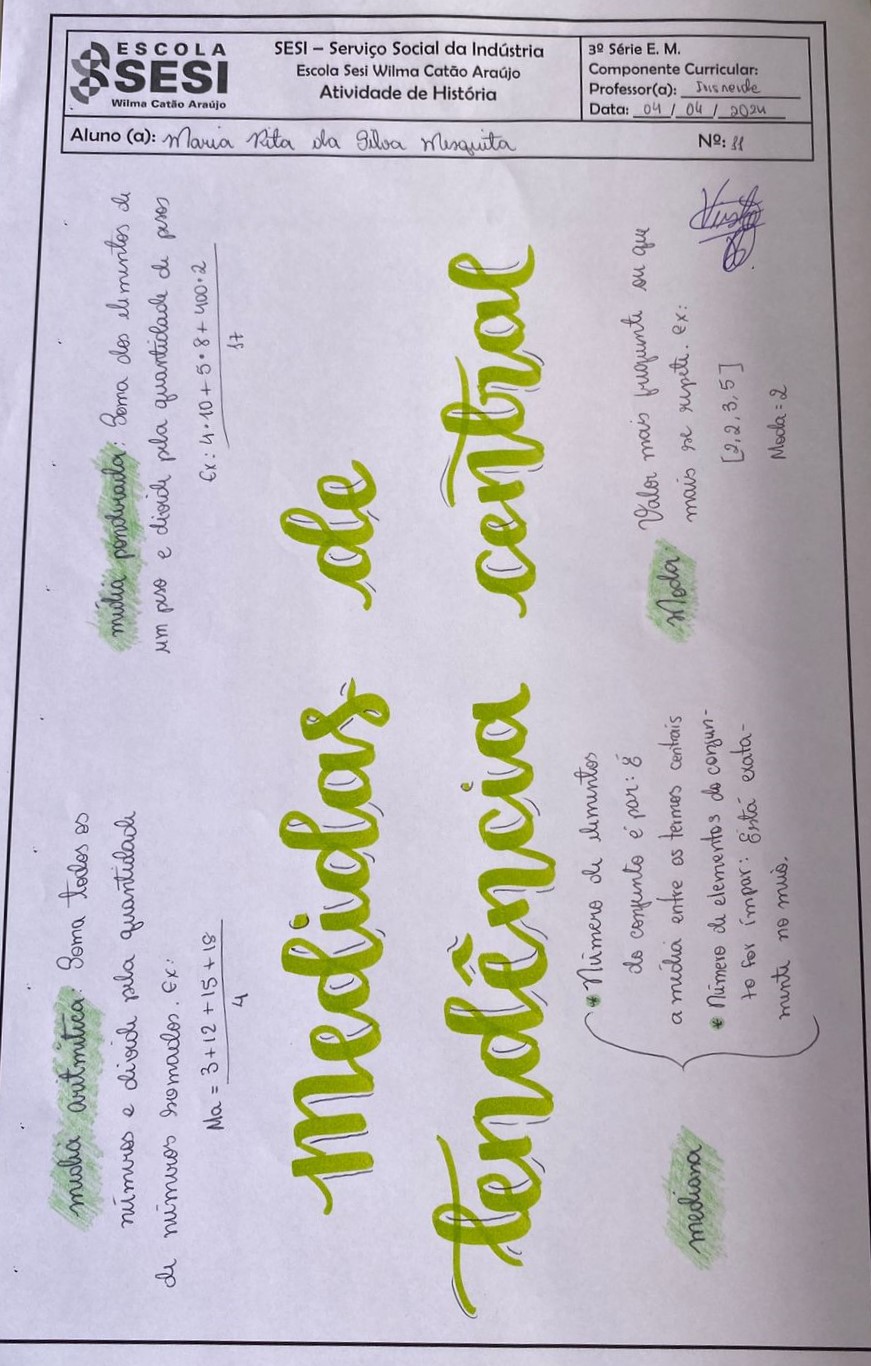 ESCOLA
SESI
Wilma Catão Araújo
SESI – Serviço Social da Indústria
Escola Sesi Wilma Catão Araújo
Atividade de História
3º Série E. M.
Componente Curricular:
Professor(a):
Data: 04 / 04 / 2024
Aluno (a): Maria Rita da Silva Mesquita
Nº: 11
média aritmética: Soma todos os
números e divide pela quantidade
de números somados. Ex:
Ma = 3+12+15+18
4
média ponderada: Soma dos elementos de
um peso e divide pela quantidade de pesos
Ex: 4•10+5•8+400•2
17
Medidas de
tendência central
mediana
* Número de elementos
do conjunto é par: É
a média entre os termos centrais
* Número de elementos do conjun-
to for ímpar: Está exata-
mente no meio.
Moda: Valor mais frequente ou que
mais se repete. ex:
[2,2,3,5]
Moda=2
Visto